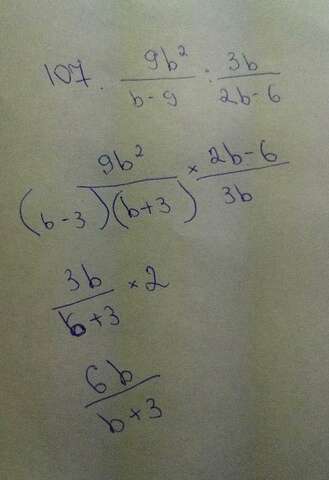 107. 9b²/(b-9) : 3b/(2b-6)
9b²/((b-3)(b+3)) × (2b-6)/3b
3b/(b+3) × 2
6b/(b+3)